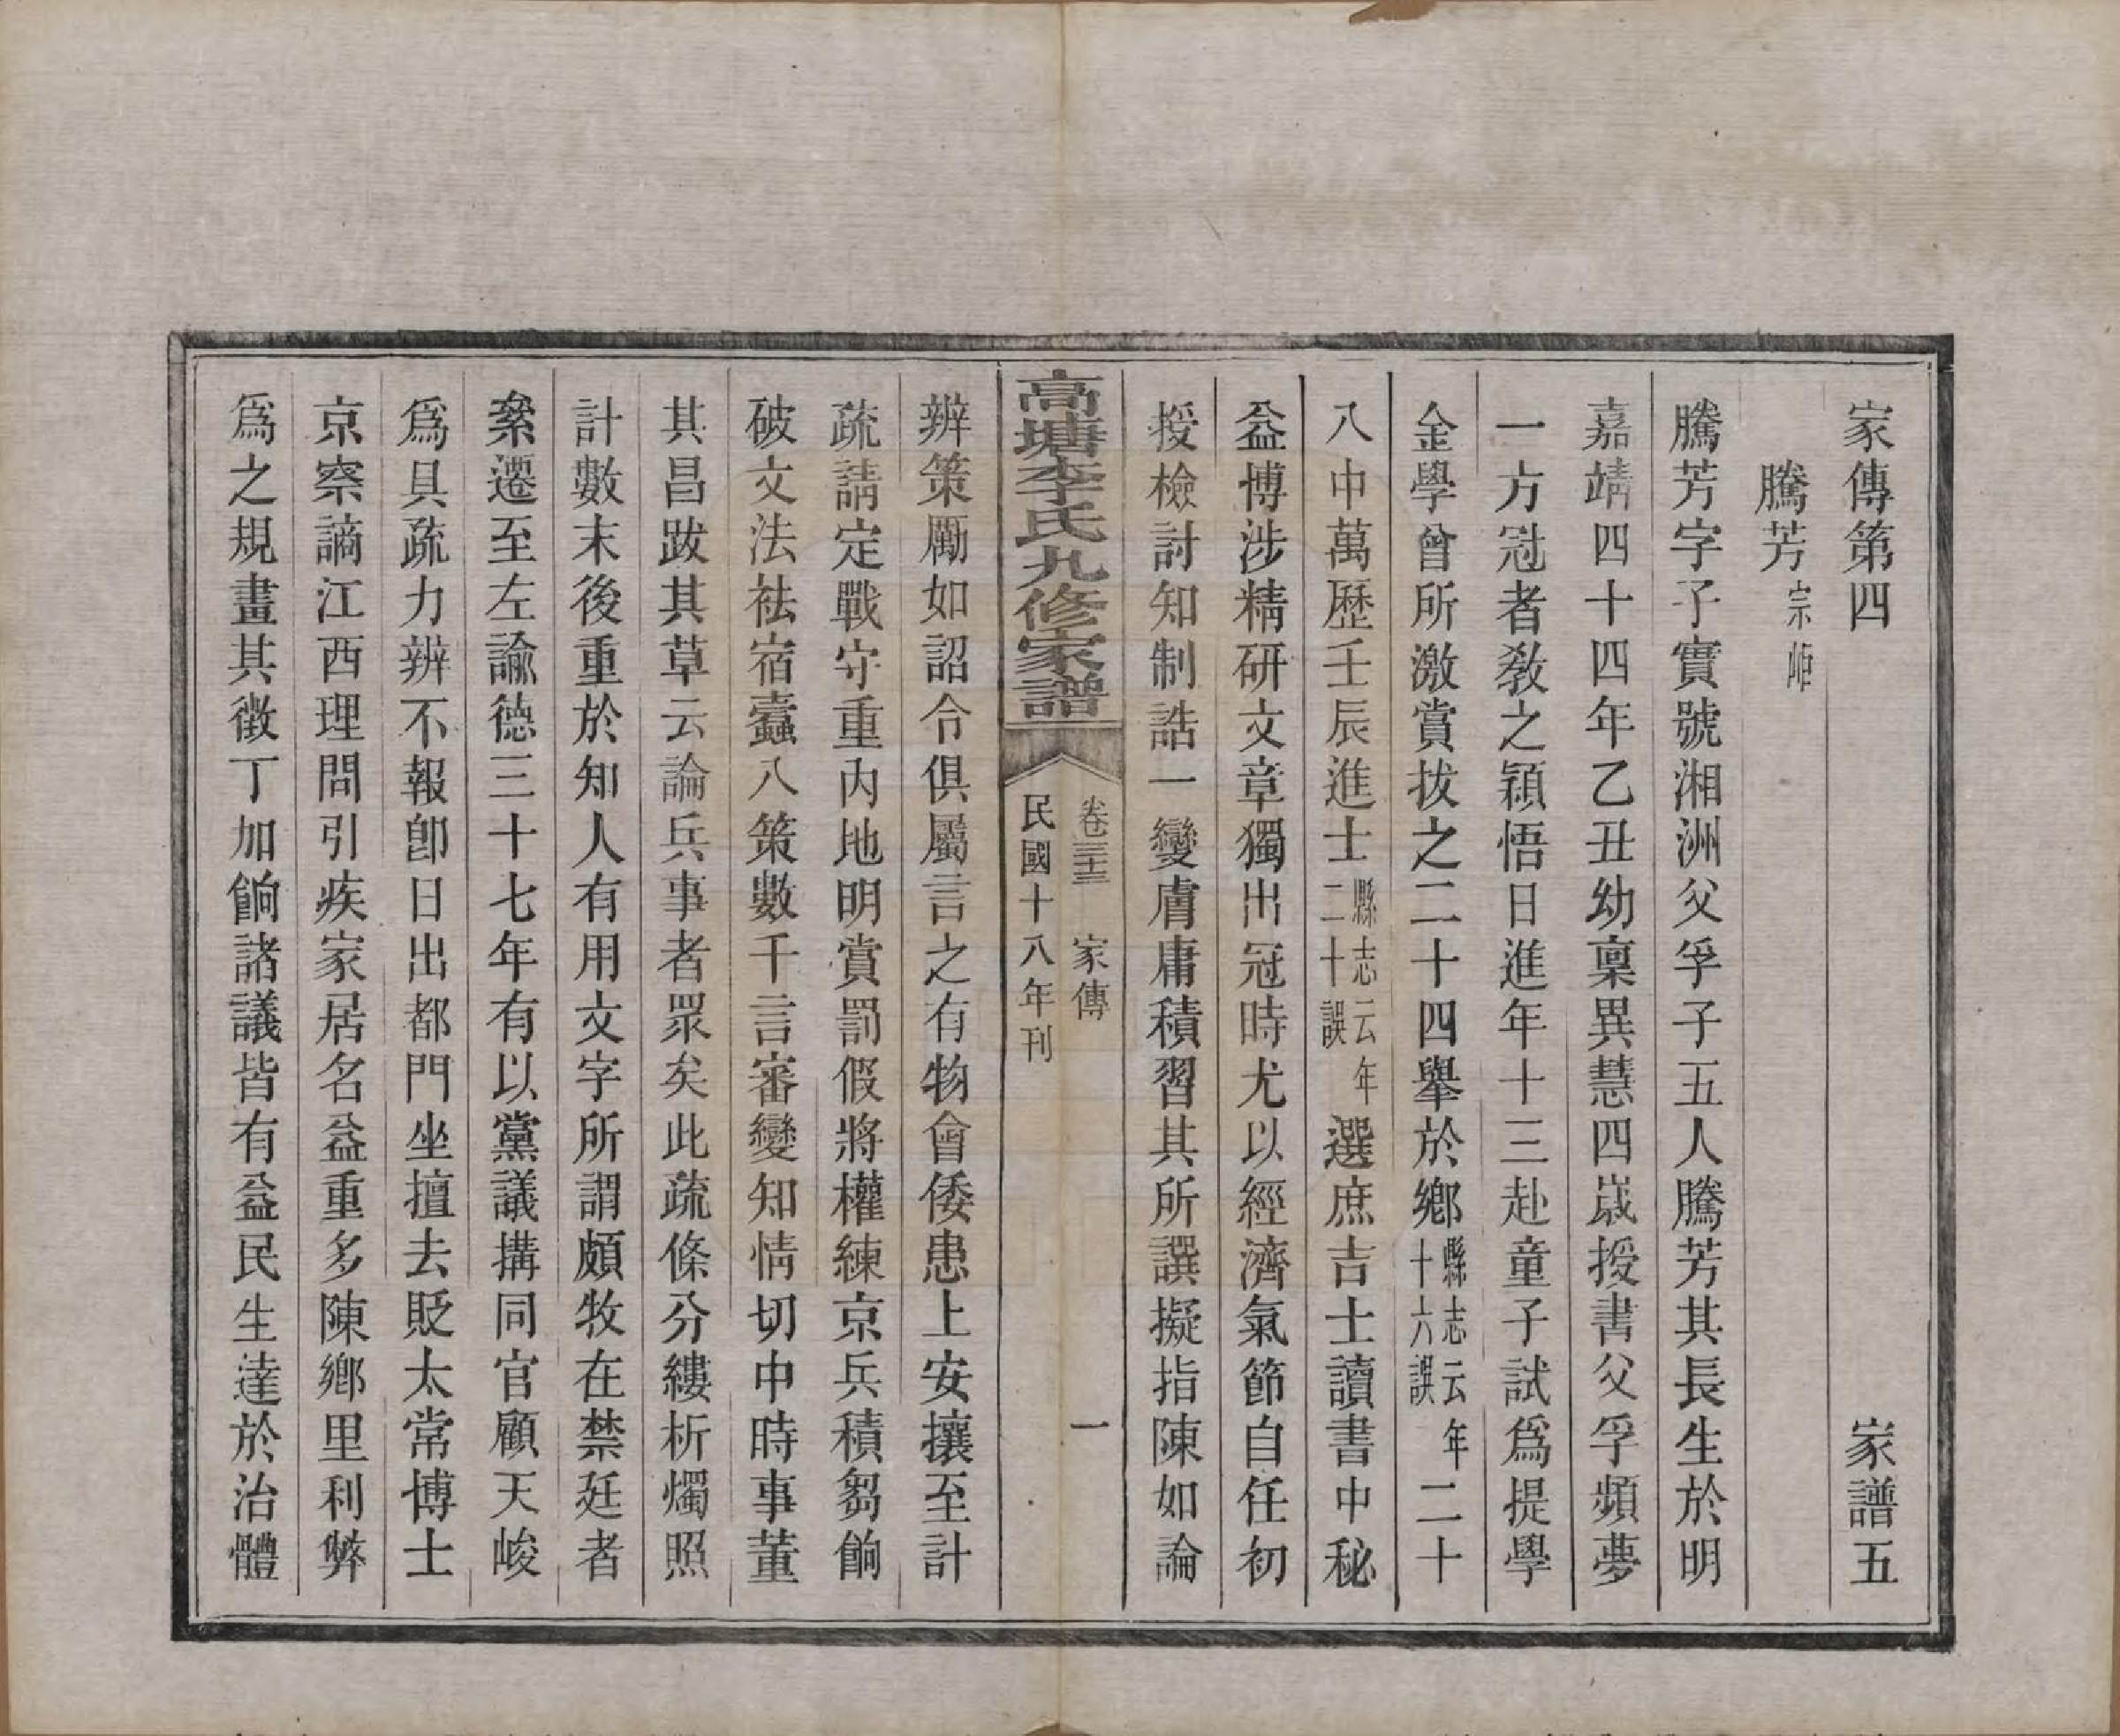 家傳第四 家譜五
騰芳 宗岠
騰芳字子實號湘洲父孚子五人騰芳其長生於明
嘉靖四十四年乙丑幼稟異慧四歲授書父孚頻夢
一方冠者教之穎悟日進年十三赴童子試爲提學
金學曾所激賞拔之二十四舉於鄉縣志云年十六誤二十
八中萬歷壬辰進士縣志云年二十誤選庶吉士讀書中秘
益博涉精研文章獨出冠時尤以經濟氣節自任初
授檢討知制誥一變膚庸積習其所譔擬指陳如論
高塘李氏九修家譜
卷三十三 家傳 一
民國十八年刊
辨策勵如詔令俱屬言之有物會倭患上安攘至計
疏請定戰守重內地明賞罰假將權練京兵積芻餉
破文法祛宿蠹八策數千言審變知情切中時事董
其昌跋其草云論兵事者眾矣此疏條分縷析燭照
計數末後重於知人有用文字所謂頗牧在禁廷者
絫遷至左諭德三十七年有以黨議搆同官顧天峻
爲具疏力辨不報卽日出都門坐擅去貶太常博士
京察謫江西理問引疾家居名益重多陳鄉里利弊
爲之規畫其徵丁加餉諸議皆有益民生達於治體